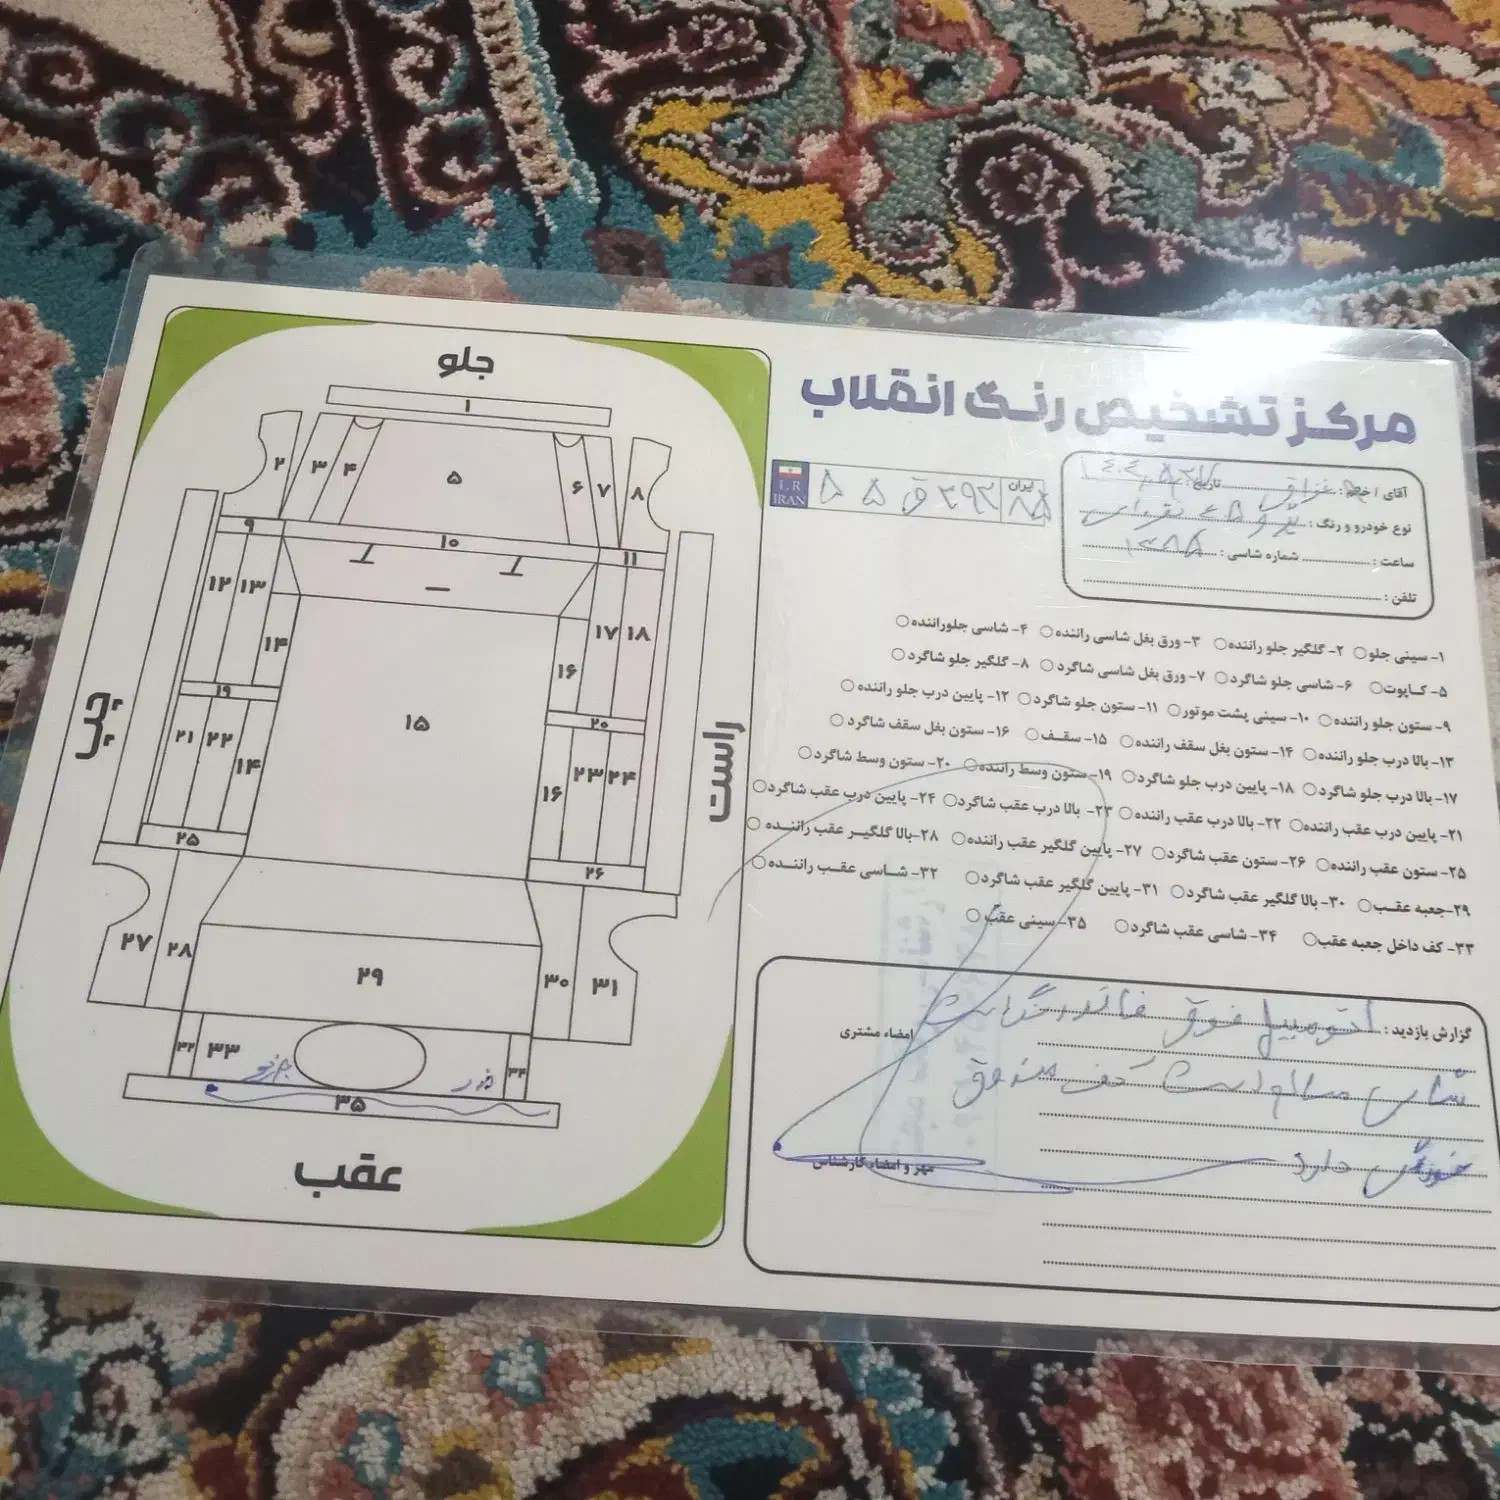 مرکز تشخیص رنگ انقلاب
I.R
IRAN
ایران
آقای / خانم :
تاریخ :
نوع خودرو و رنگ :
ساعت : شماره شاسی :
تلفن :
۱- سینی جلو ۲- گلگیر جلو راننده ۳- ورق بغل شاسی راننده ۴- شاسی جلوراننده
۵- کـاپوت ۶- شاسی جلو شاگرد ۷- ورق بغل شاسی شاگرد ۸- گلگیر جلو شاگرد
۹- ستون جلو راننده ۱۰- سینی پشت موتور ۱۱- ستون جلو شاگرد ۱۲- پایین درب جلو راننده
۱۳- بالا درب جلو راننده ۱۴- ستون بغل سقف راننده ۱۵- سقـف ۱۶- ستون بغل سقف شاگرد
۱۷- بالا درب جلو شاگرد ۱۸- پایین درب جلو شاگرد ۱۹- ستون وسط راننده ۲۰- ستون وسط شاگرد
۲۱- پایین درب عقب راننده ۲۲- بالا درب عقب راننده ۲۳- بالا درب عقب شاگرد ۲۴- پایین درب عقب شاگرد
۲۵- ستون عقب راننده ۲۶- ستون عقب شاگرد ۲۷- پایین گلگیر عقب راننده ۲۸-بالا گلگیـر عقب راننـده
۲۹-جعبه عقـب ۳۰- بالا گلگیر عقب شاگرد ۳۱- پایین گلگیر عقب شاگرد ۳۲- شـاسی عقـب راننـده
۳۳- کف داخل جعبه عقب ۳۴- شاسی عقب شاگرد ۳۵- سینی عقب
گزارش بازدید : اتومبیل فوق فاقد رنگ است
امضاء مشتری
شاسی سالم است کف صندوق
خوردگی دارد
مهر و امضاء کارشناس
جلو
۱
۲ ۳ ۴ ۵ ۶ ۷ ۸
۹ ۱۰ ۱۱
۱۲ ۱۳ ۱۴ ۱۷ ۱۸
۱۶
۱۹ ۱۵ ۲۰
چپ
راست
۲۱ ۲۲ ۱۴ ۱۶ ۲۳ ۲۴
۲۵ ۲۶
۲۷ ۲۸ ۲۹ ۳۰ ۳۱
۳۲ ۳۳ ۳۴
۳۵
عقب